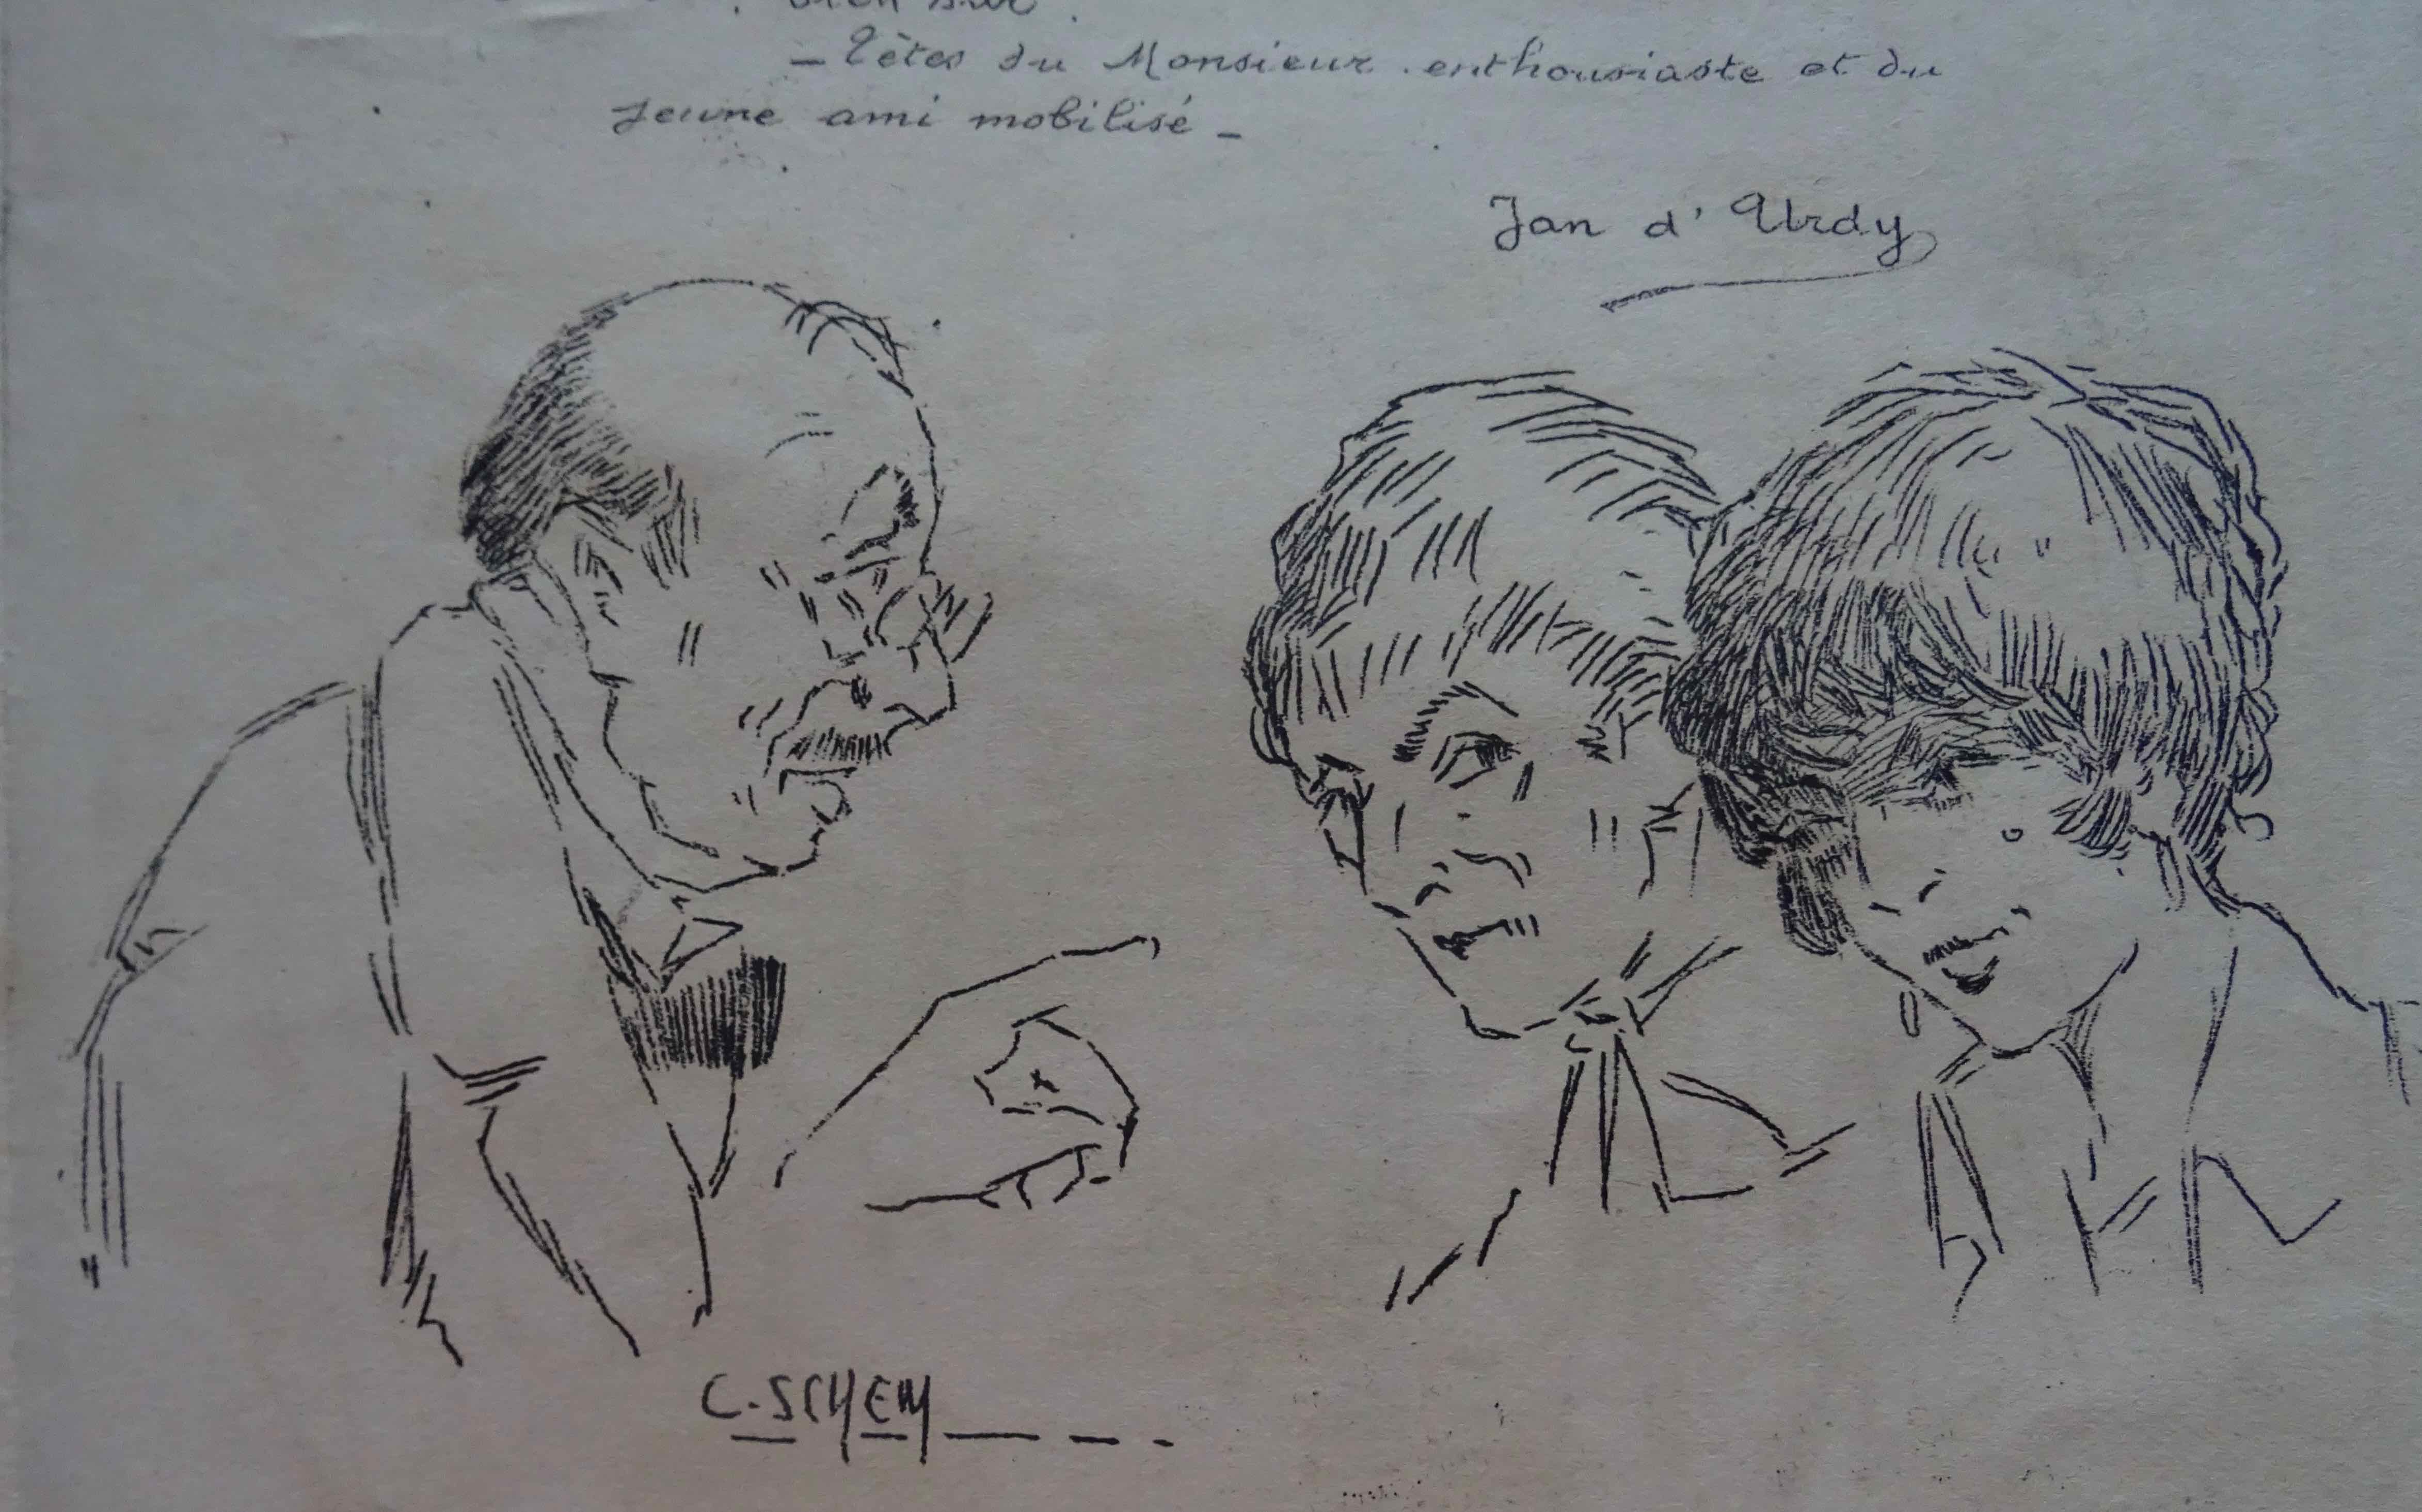 bien sûr.
— Têtes du Monsieur enthousiaste et du
jeune ami mobilisé —
Jan d'Urdy
C. SCHEM